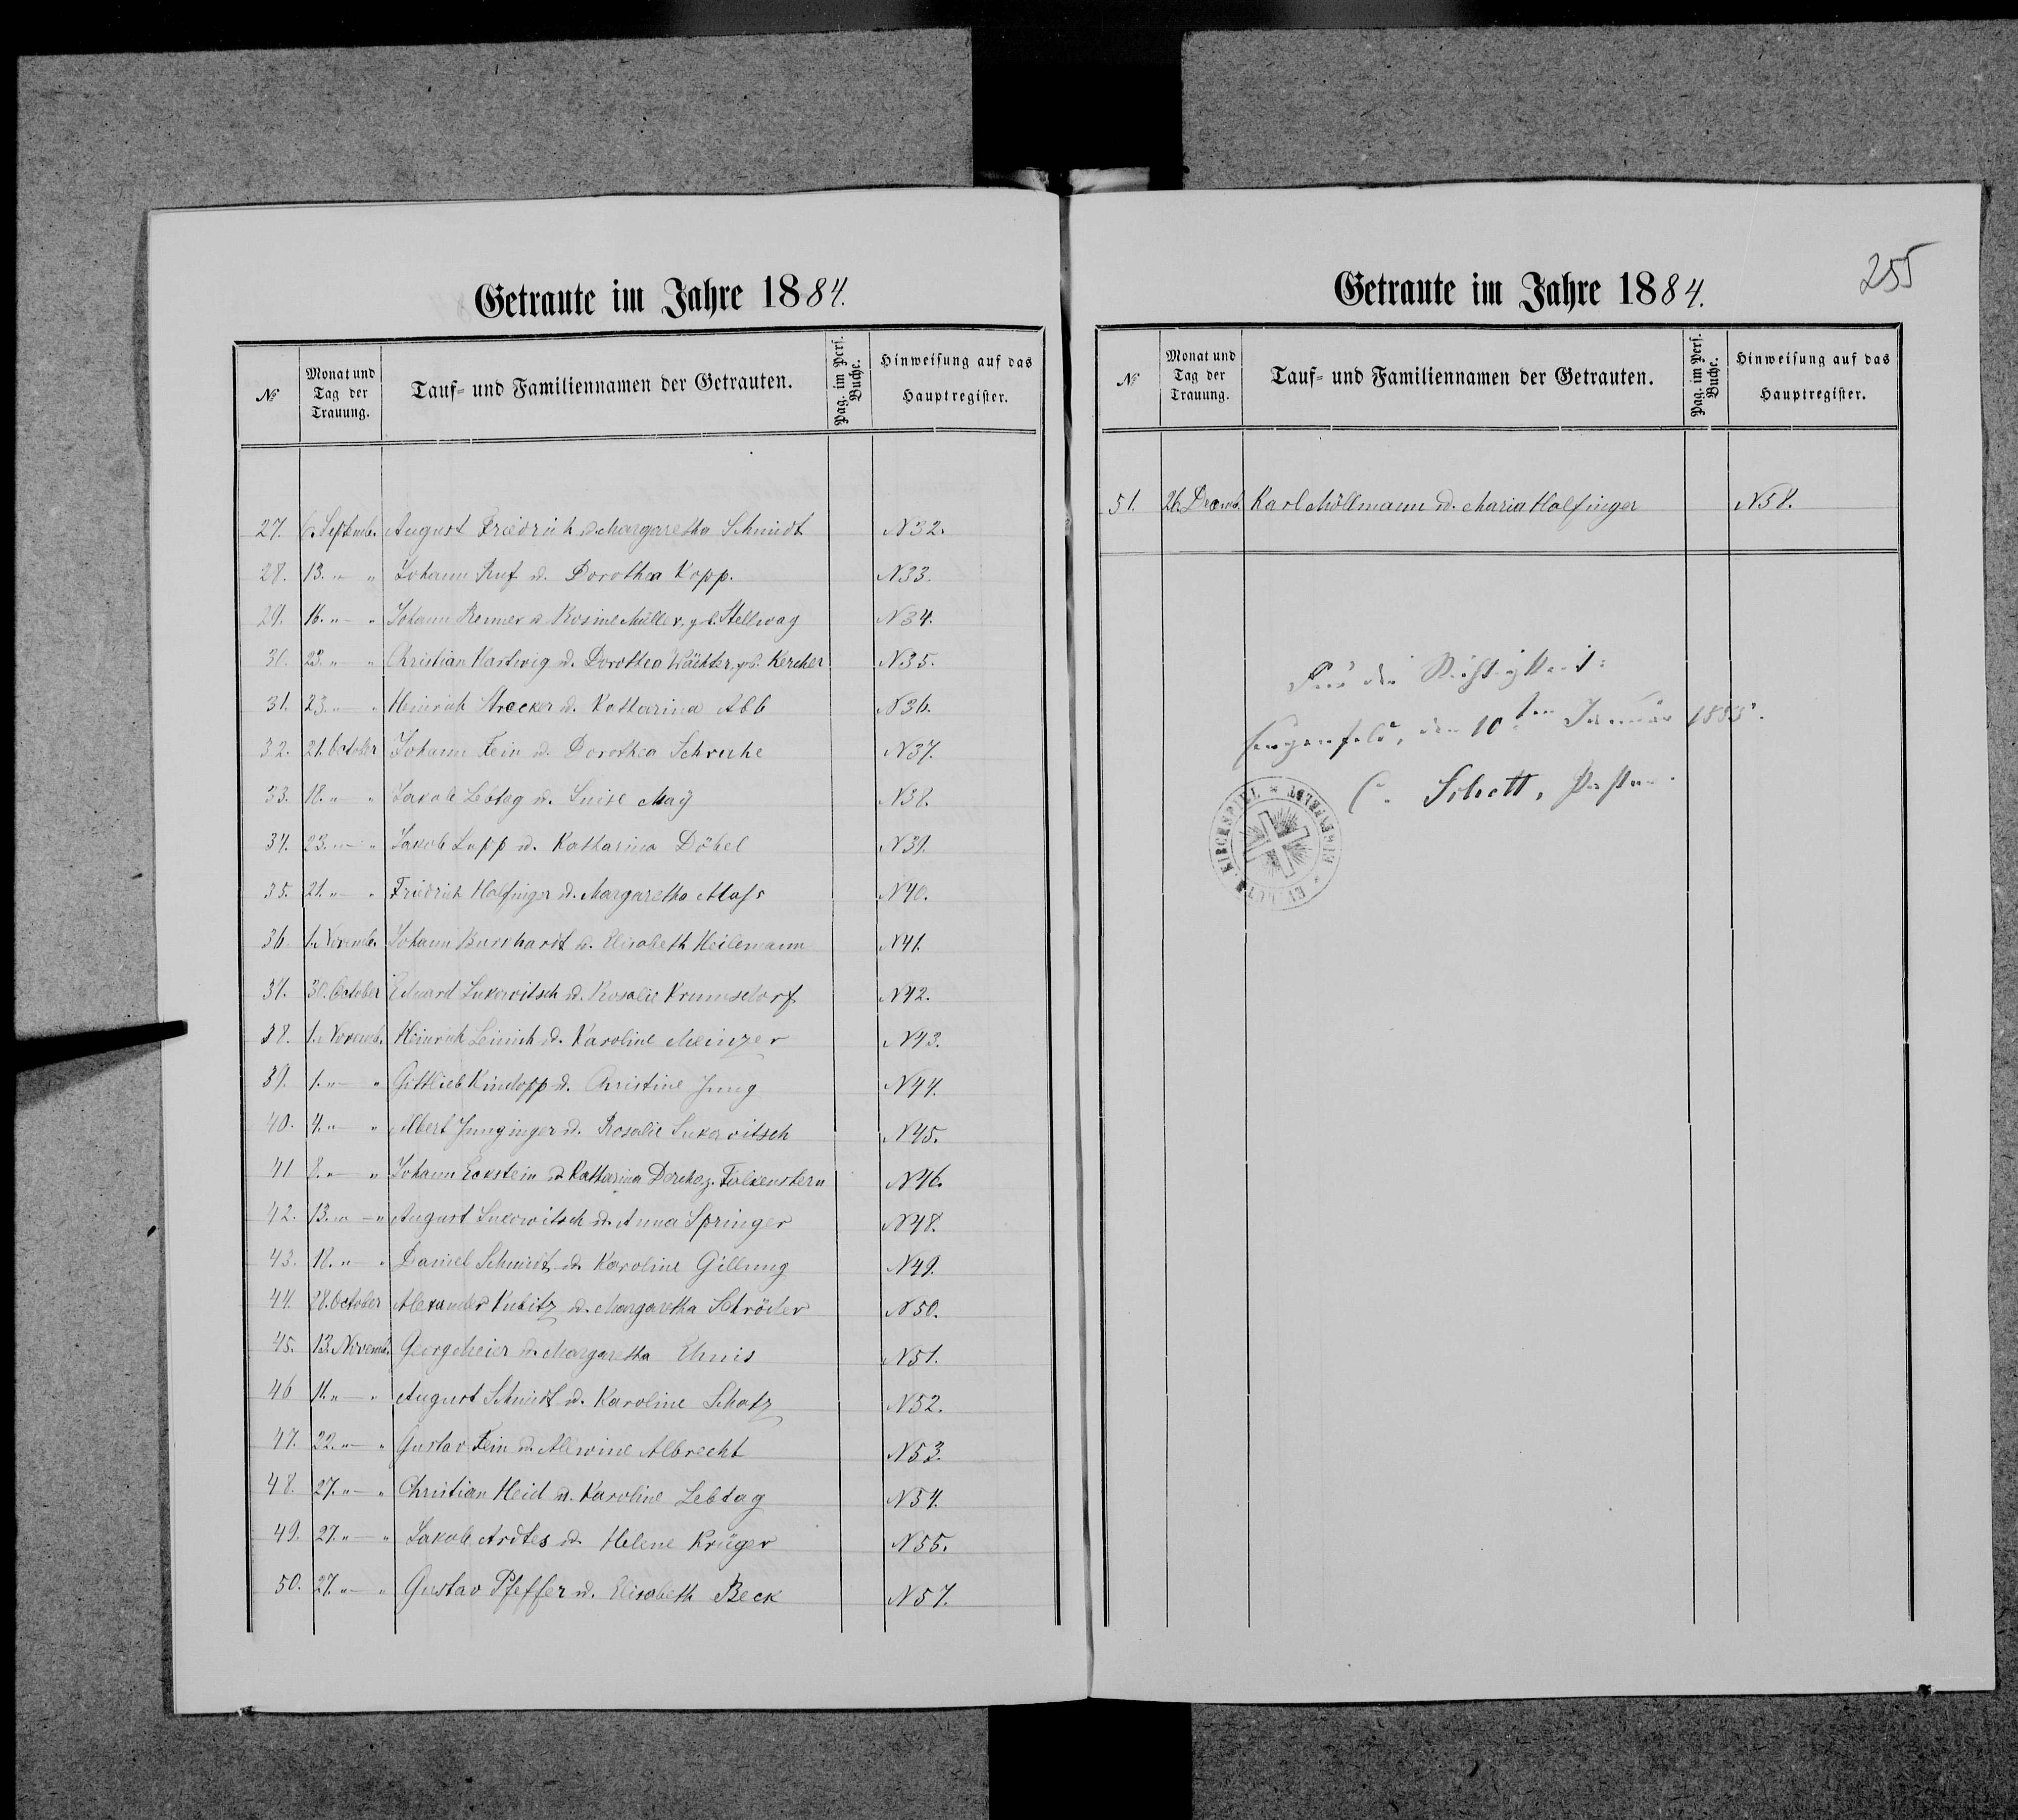 Getraute im Jahre 1884.
№ Monat und Tag der Trauung. Tauf- und Familiennamen der Getrauten. Pag. im Pers. Buche. Hinweisung auf das Hauptregister.
27. 6. Septemb. August Friedrich u. Margaretha Schmidt N 32.
28. 13. " — " Johann Ruf u. Dorothea Kopp. N 33.
29. 16. " — " Johann Renner u. Rosine Müller, geb. Stellwag N 34.
30. 23. " — " Christian Hartwig u. Dorothea Wächter, geb. Kercher N 35.
31. 23. " — " Heinrich Strecker u. Katharina Abb N 36.
32. 21. October Johann Fein u. Dorothea N 37.
33. 18. " — " Jakob Lebtag u. Luise Maÿ N 38.
34. 23. " — " Jakob Lapp u. Katharina Döbel N 39.
35. 21. " — " Friedrich Holfinger u. Margaretha N 40.
36. 1. November Johann Burkhardt u. Elisabeth Heilemann N 41.
37. 30. October Eduard Lukowitsch u. Rosalie Krumsdorf N 42.
38. 1. Novemb. Heinrich u. Karoline Meinzer N 43.
39. 1. " — " Gottlieb Kindopp u. Christine Jung N 44.
40. 4. " — " Albert Junginger u. Rosalie Lukowitsch N 45.
41 8. " — " Johann Eckstein u. Katharina g. Falkenstern N 46.
42. 13. " — " August Lukowitsch u. Anna Springer N 48.
43. 18. " — " Daniel Schmidt u. Karoline Gillung N 49.
44. 28. October Alexander Kubitz u. Margaretha Schröder N 50.
45. 13. Novemb. Georg Meier u. Margaretha Ehnis N 51.
46 11. " — " August Schmidt u. Karoline Schatz N 52.
47. 22. " — " Gustav Fein u. Allwine Albrecht N 53.
48. 27. " — " Christian Heid u. Karoline Lebtag N 54.
49. 27. " — " Jakob Ardtes u. Helene Krüger N 55.
50. 27. " — " Gustav Pfeffer u. Elisabeth Beck N 57.
255
Getraute im Jahre 1884.
№ Monat und Tag der Trauung. Tauf- und Familiennamen der Getrauten. Pag. im Pers. Buche. Hinweisung auf das Hauptregister.
51. 26. Decemb. Karl Möllmann u. Maria Holfinger N 58.
Für die Richtigkeit:
den 10ten Januar 1885.
C. Schott, Pastor.
KIRCHSPIEL